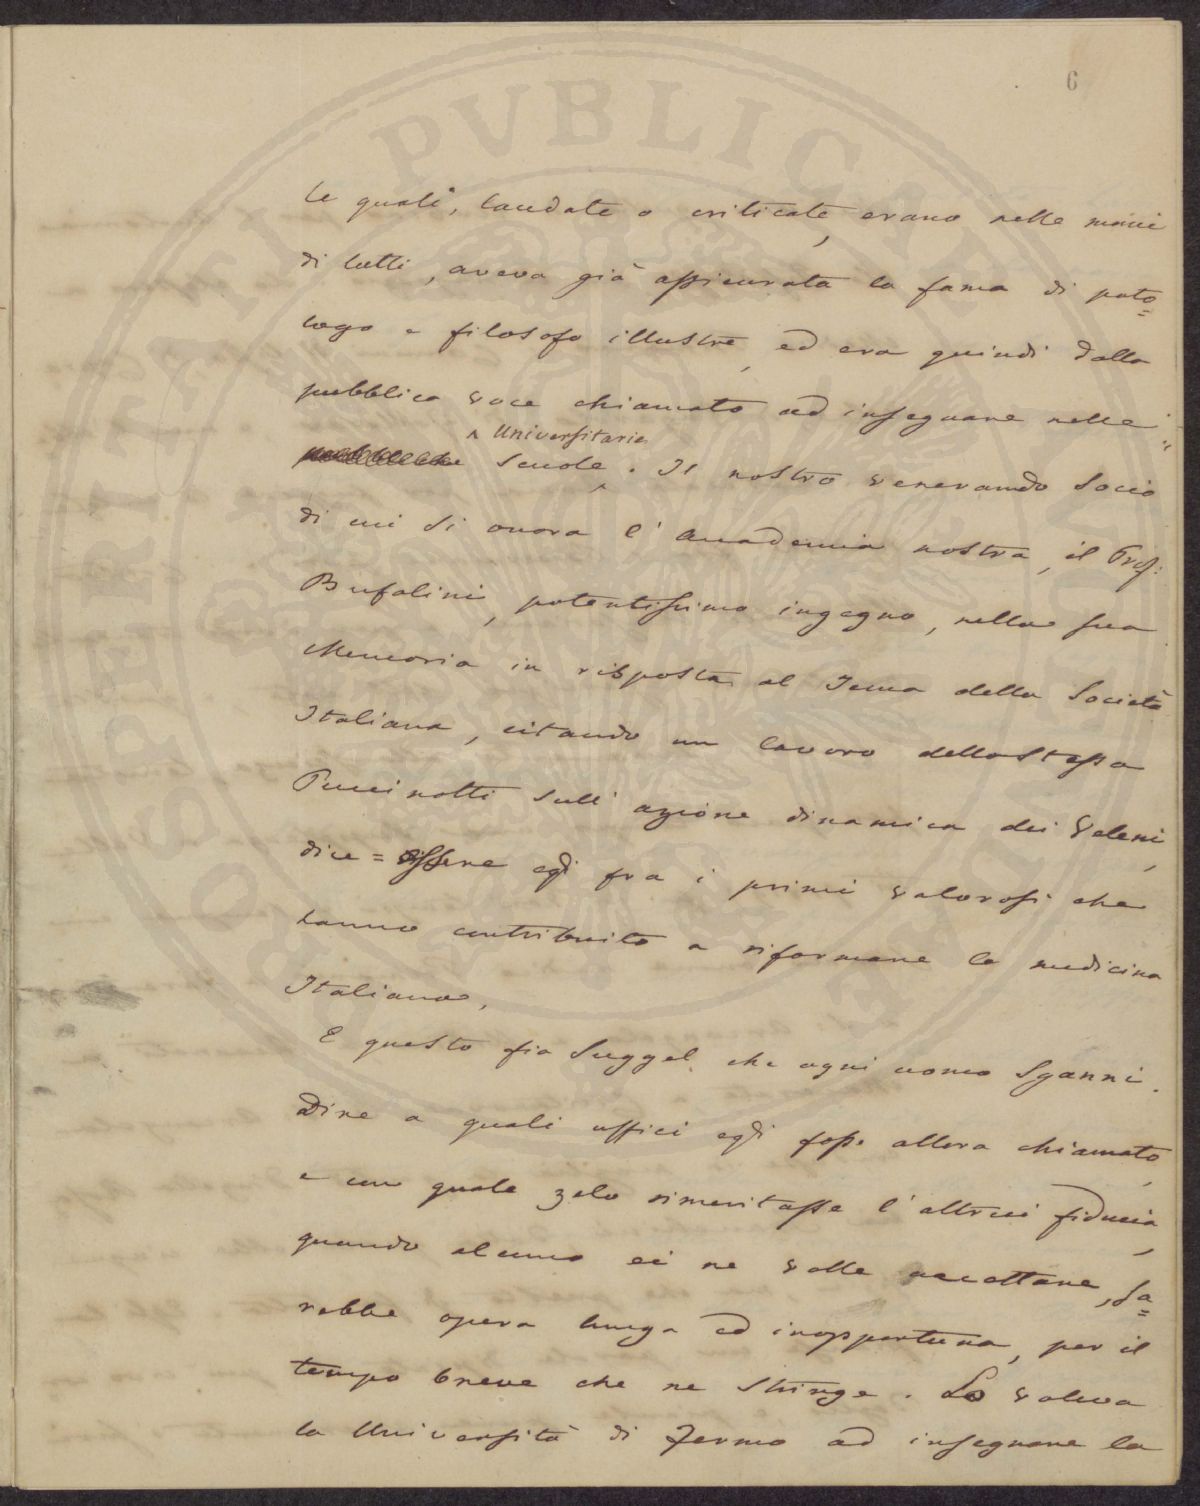 6
le quali, laudate o criticate, erano nelle mani
di tutti, aveva già assicurata la fama di pato=
logo e filosofo illustre, ed era quindi dalla
pubblica voce chiamato ad insegnare nelle
^ Universitarie
pubbliche Scuole. Il nostro venerando Socio
di cui si onora l'Accademia nostra, il Prof:
Bufalini, potentissimo ingegno, nella sua
Memoria in risposta al Tema della Società
Italiana, citando un lavoro dello stesso
Puccinotti sull'azione dinamica dei Veleni,
dice = essere egli fra i primi valorosi che
hanno contribuito a riformare la medicina
Italiana.
E questo fia Suggel che ogni uomo Sganni.
Dire a quali uffici egli fosse allora chiamato,
e con quale zelo rimeritasse l'altrui fiducia,
quando alcuno ei ne volle accettare, sa=
rebbe opera lunga ed inopportuna, per il
tempo breve che ne stringe. Lo voleva
la Università di Fermo ad insegnare la
PROSPERITATI PVBLICAE